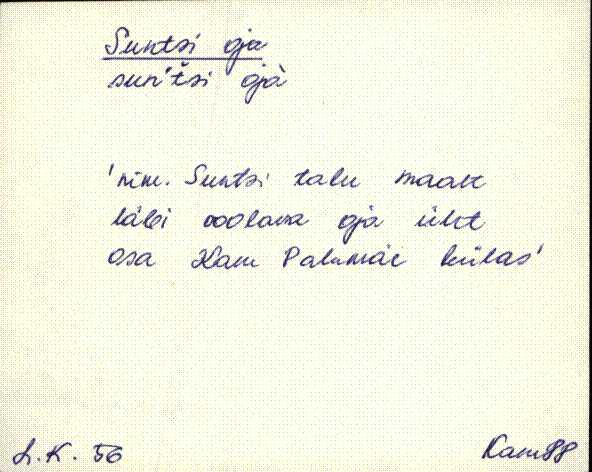 Suntsi oja
sun'tsi ojà
'nim. Suntsi talu maad
läbi voolava oja üht
osa Kam Palumäe külas'
L.K. 56
Kam